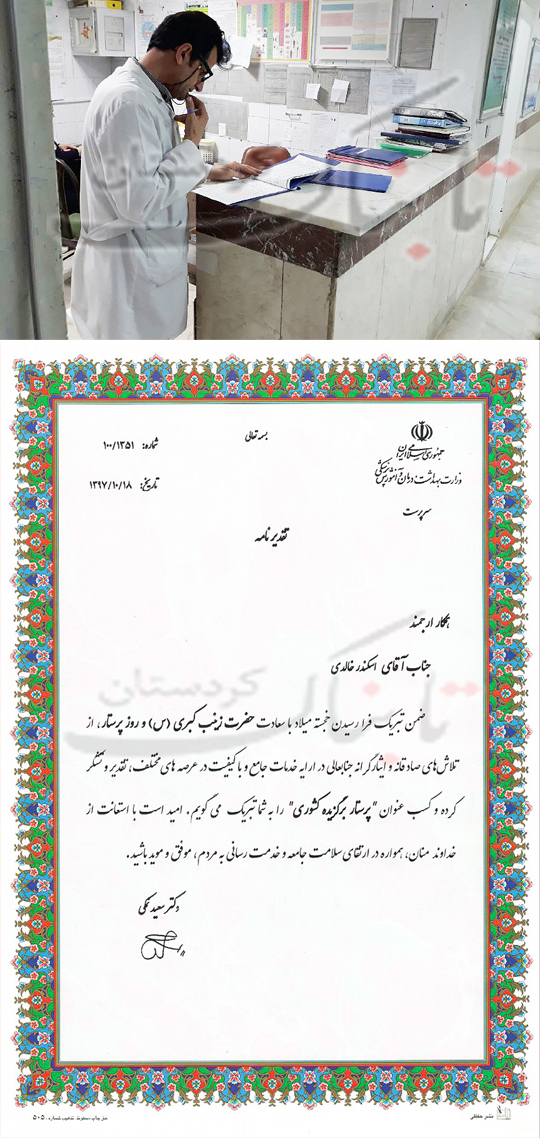 تابناک
کردستان
بسمه تعالی
شماره: ۱۰۰/۱۳۵۱
تاریخ: ۱۳۹۷/۱۰/۱۸
جمهوری اسلامی ایران
وزارت بهداشت، درمان و آموزش پزشکی
سرپرست
تقدیر نامه
همکار ارجمند
جناب آقای اسکندر خالدی
تابناک
کردستان
ضمن تبریک فرا رسیدن خجسته میلاد با سعادت حضرت زینب کبری (س) و روز پرستار، از
تلاش های صادقانه و ایثارگرانه جنابعالی در ارایه خدمات جامع و با کیفیت در عرصه های مختلف، تقدیر و تشکر
کرده و کسب عنوان "پرستار برگزیده کشوری" را به شما تبریک می گویم. امید است با استعانت از
خداوند منان، همواره در ارتقای سلامت جامعه و خدمت رسانی به مردم، موفق و موید باشید.
دکتر سعید نمکی
نشر حقیقی
حق چاپ محفوظ تذهیب شماره ۵۰۵۰